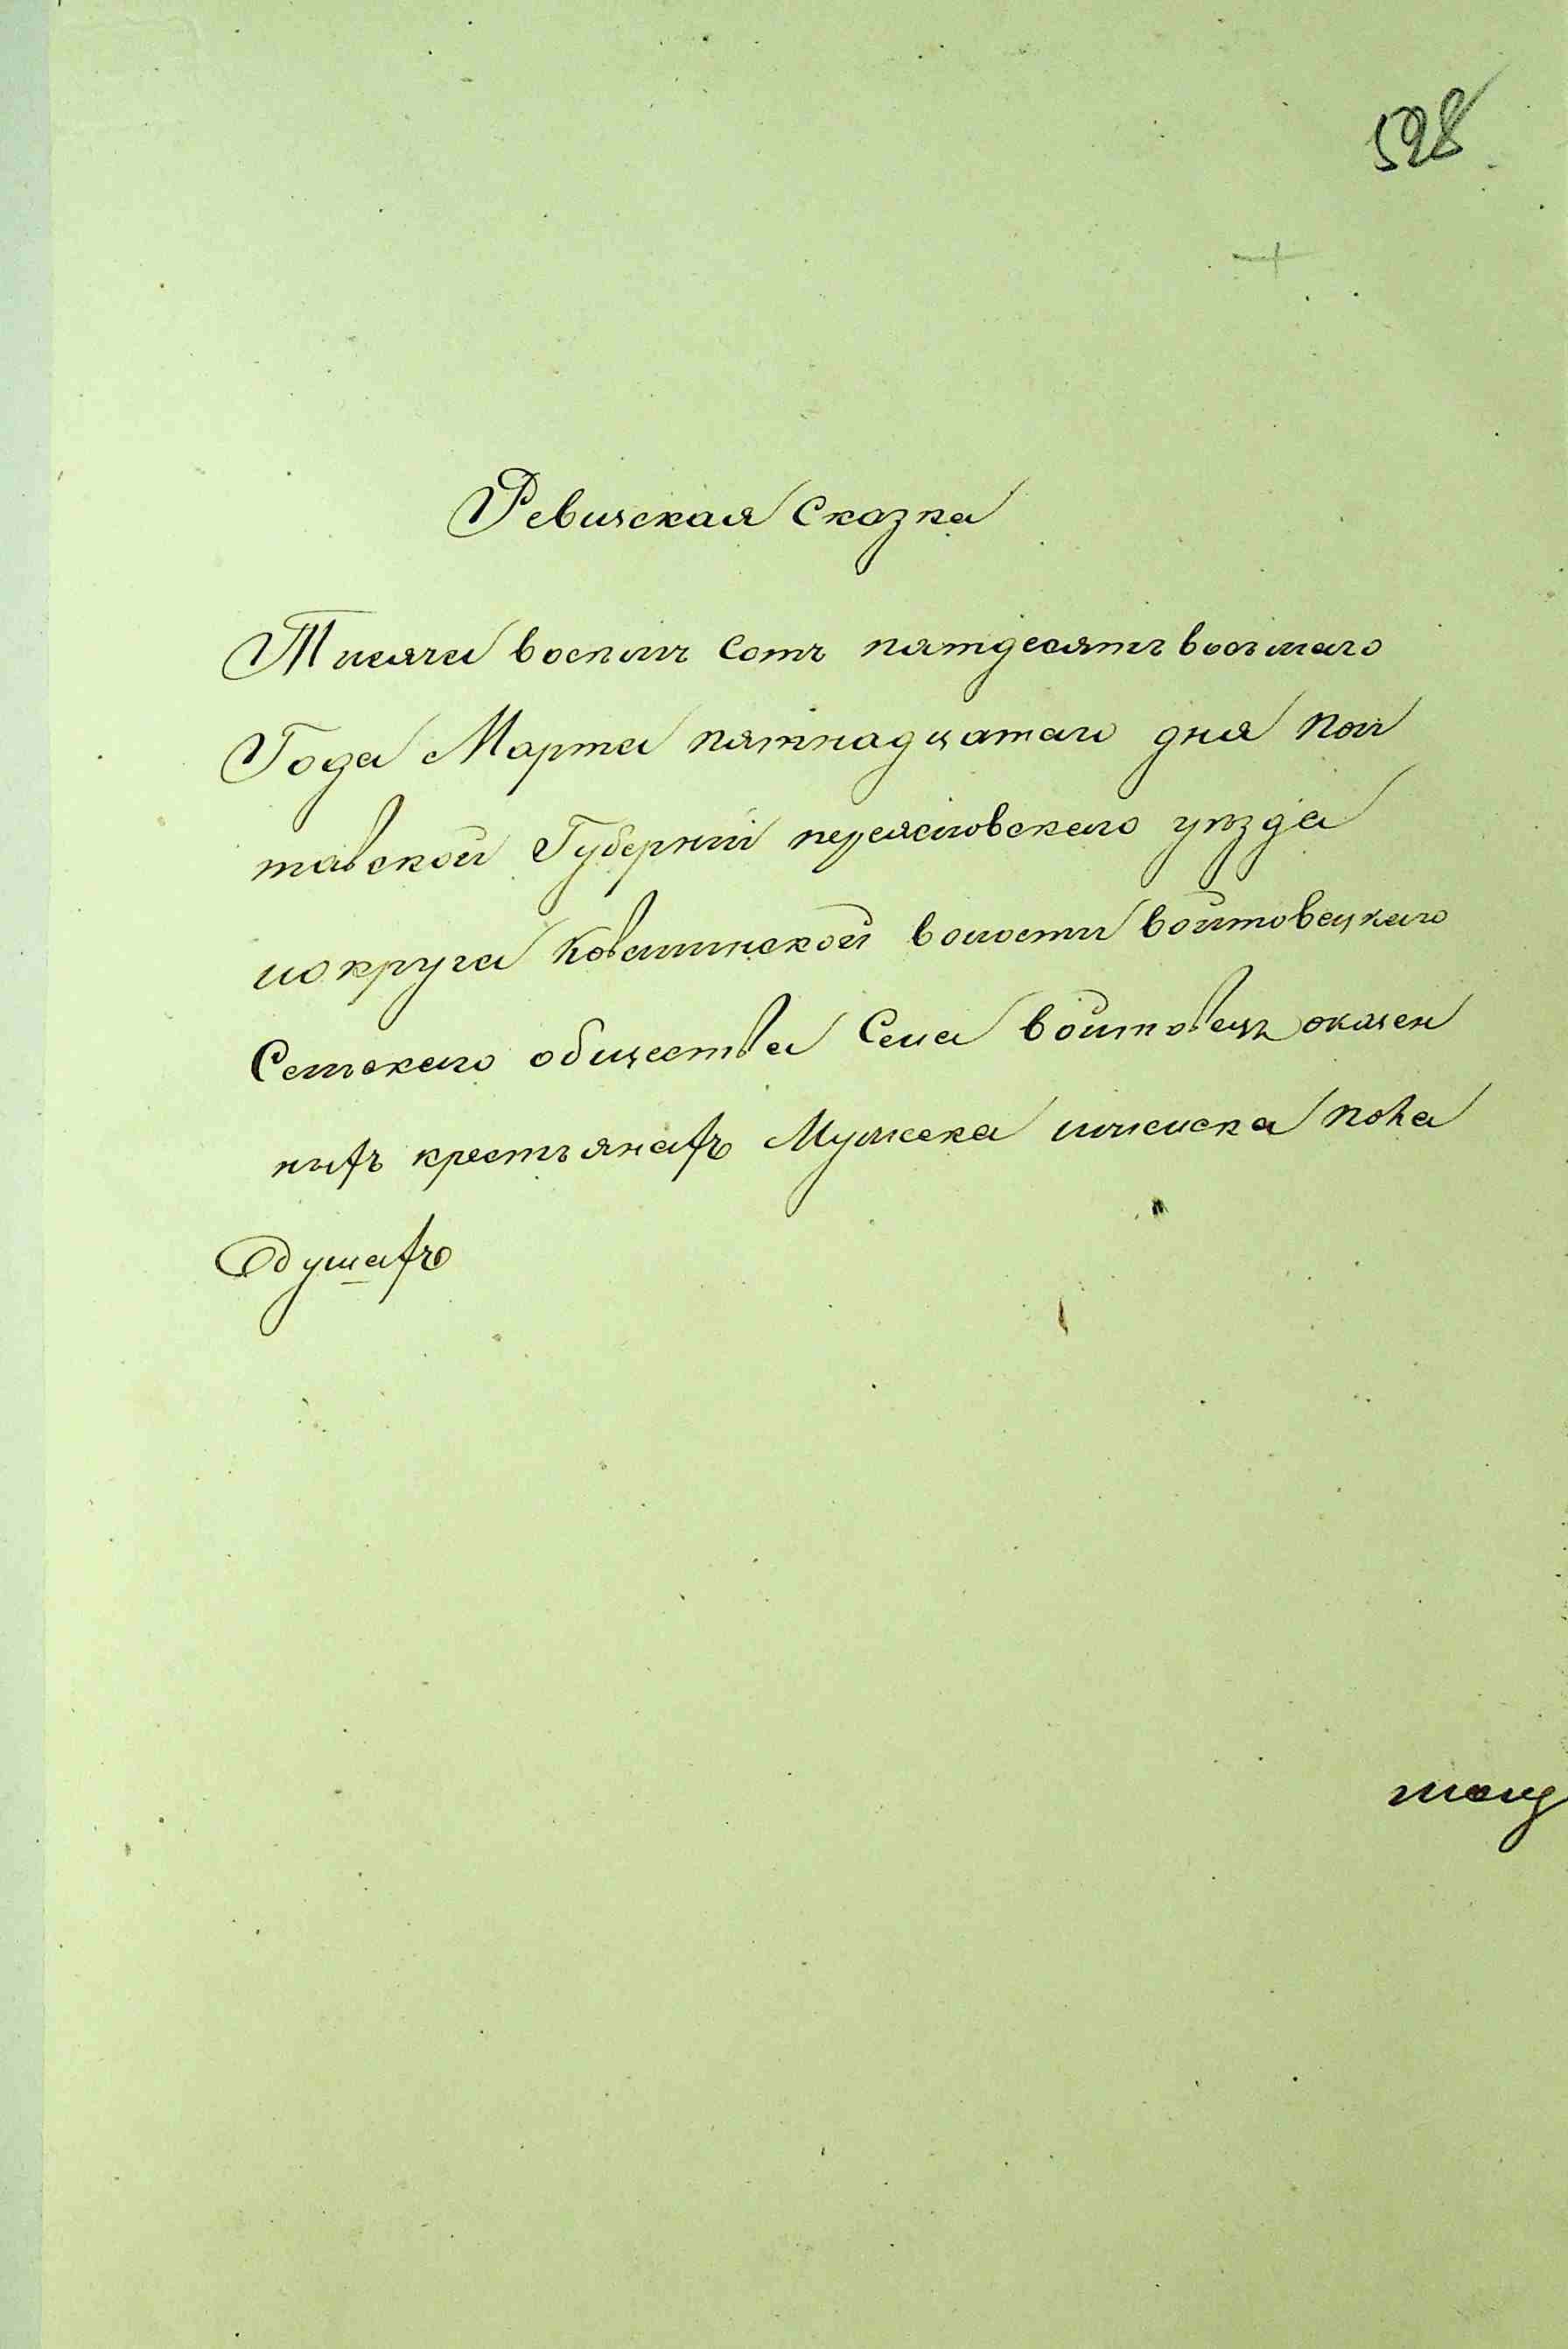 528
Ревизская Сказка
Тисяча воспмъ Сотъ пятдесятъ восмаго
Года Марта пятнадцатаго дня Пол
тавской Губерний переясловского уезда
и округа Ковалинской волости войтовецкаго
Селского общества Села войтовецъ оказен
ныхъ крестьянахъ Мужеска иженска пола
Душахъ